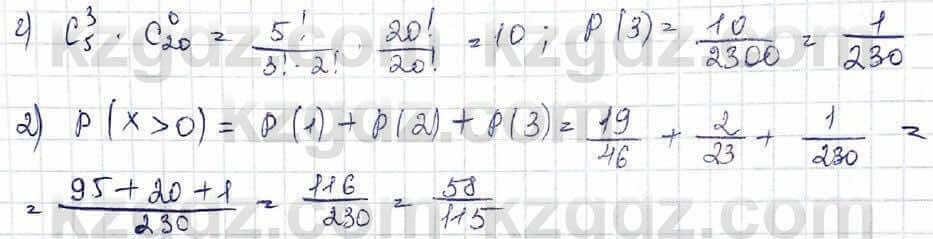 г) C₅³ · C₂₀⁰ = 5! / (3! · 2!) · 20! / 20! = 10; P(3) = 10/2300 = 1/230
2) P(x>0) = P(1) + P(2) + P(3) = 19/46 + 2/23 + 1/230 =
= (95 + 20 + 1)/230 = 116/230 = 58/115
kzgdz.com